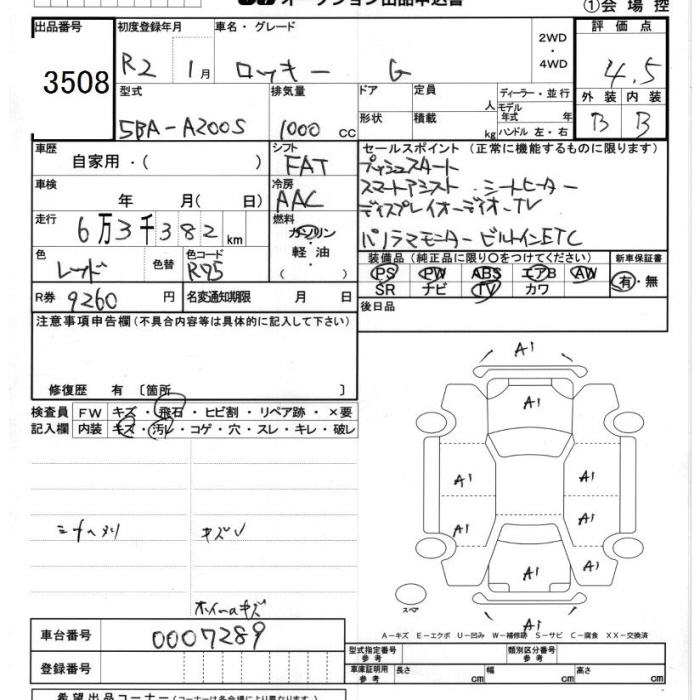 オークション出品申込書 ①会場控
出品番号 初度登録年月 車名・グレード 2WD・4WD 評価点
3508 R2 1月 ロッキー G 4.5
型式 排気量 ドア 定員 人 ディーラー・並行 外装 内装
5BA-A200S 1000 cc 形状 積載 kg モデル年式 年 ハンドル 左・右 B B
車歴 自家用・( ) シフト FAT セールスポイント (正常に機能するものに限ります)
プッシュスタート
車検 年 月( 日) 冷房 AAC スマートアシスト シートヒーター
ディスプレイオーディオ TV
走行 6万3千382km 燃料 ガソリン・軽油・( ) パノラマモニター ビルトインETC
色 レッド 色替 色コード R75 装備品 (純正品に限り○をつけてください) 新車保証書
PS PW ABS エアB AW 有・無
SR ナビ TV カワ
R券 9260 円 名変通知期限 月 日 後日品
注意事項申告欄 (不具合内容等は具体的に記入して下さい)
修復歴 有 〔箇所 〕
検査員 FW キズ・飛石・ヒビ割・リペア跡・×要
記入欄 内装 キズ・汚レ・コゲ・穴・スレ・キレ・破レ
A1
A1
A1 A1
A1 A1
A1
A1
A1
シートヘタリ キズ
ホイールキズ
スペア
A-キズ E-エクボ U-凹み W-補修跡 S-サビ C-腐食 XX-交換済
車台番号 0007289
型式指定番号 参考 類別区分番号 参考
登録番号 車庫証明用 参考 長さ cm 幅 cm 高さ cm
希望出品コーナー